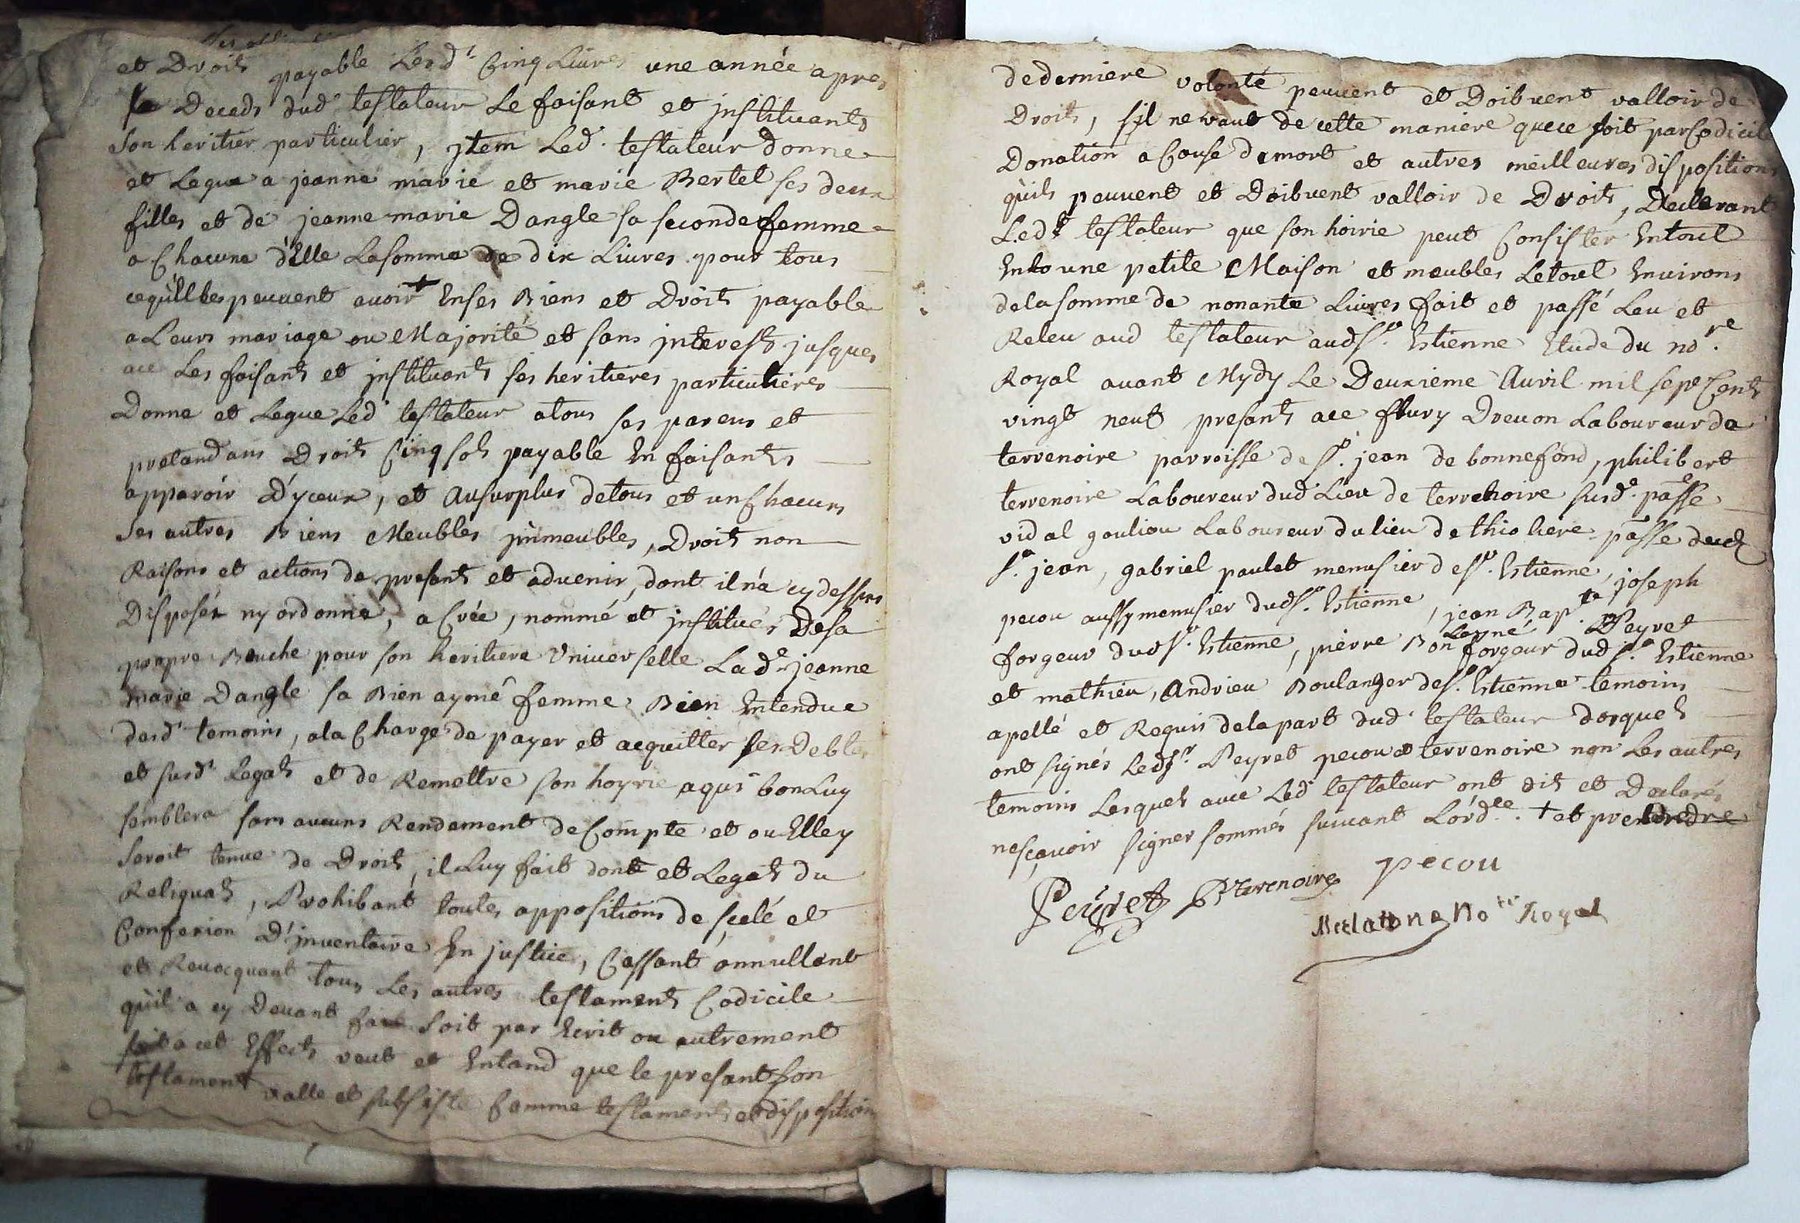 et Droits payable Lesd.t Cinq Livres une année apres
le Deceds dud.t testateur Le faisant et instituants
son heritier particulier, jtem Led.t testateur donne
et Legue a jeanne marie et marie Bertel ses deux
filles et de jeanne marie Dangle sa seconde femme
a Chacune d'Elle La somme de dix Livres pour tous
ce qu'Elles peuvent avoir + En ses Biens et Droits payable
a Leurs mariage ou Majorité et sans jnterest jusques
ace Les faisants et jnstituants ses heritieres particulieres
Donne et Legue Led.t testateur atous ses parens et
pretandans Droits Cinq sols payable En faisants
apparoir d'yceux, et Ausurplus detous et un Chacuns
ses autres Biens Meubles jmmeubles, Droits nom
Raisons et actions de presents et advenir, dont il n'a cy dessus
Disposér ny ordonné, a Créé, nommé et jnstitués Desa
propre Bouche pour son heritiere Universelle Lad.e jeanne
marie Dangle sa Bien aymé femme Bien Entendue
desd.t temoins, ala Charge de payer et acquitter ses Debtes
et susd.t Legats et de Remettre son hoyrie aqui bon Luy
semblera sans aucuns Rendement de Compte et ou Elle y
seroit tenue de Droits, il Luy fait dont et Legats du
Reliquats, Prohibant toutes appositions de scelé et
Confexion D'jnventaire En justice, Cassant annullant
et Revocquant tous Les autres testaments Codicile
quil a cy Devant fait soit par Ecrit ou autrement
a cet Effects veut et Entand que le presant son
testament valle et subsiste Comme testaments et disposition
de derniere volonté peuvent et Doibvent valloir de
Droits, s'il ne vaut de cette maniere que ce soit par Codicile
Donation a Cause de mort et autres meilleures dispositions
quils peuvent et Doibvent valloir de Droits, Declarant
Led.t testateur que son hoirie peut Consister Entout
En une petite Maison et meubles Letout Environs
de la somme de nonante Livres fait et passé Leu et
Releu aud testateur aud S.t Estienne Etude du no.re
Royal avant Mydy Le Deuxieme Avril mil sept Cents
vingt neuf presants ace fleury Drevon Laboureur de
terrenoire parroisse de S.t jean de bonnefond, philibert
terrenoire Laboureur dud Lieu de terrenoire susd.e passe
vidal gouliou Laboureur du lieu de thioliere passe dud
S.t jean, gabriel paulet menusier de S.t Estienne, joseph
pecou aussy menusier dud S.t Estienne, jean Bap.te Peyret
forgeur dud S.t Estienne, pierre Bon forgeur dud S.t Estienne
et mathieu, Andrieu Boulanger de S.t Estienne temoins
apellé et Requis de la part dud.t testateur desquels
ont signés Led S.r Peyret pecou et terrenoire non Les autres
temoins Lesquels avec Led.t testateur ont dit et Declarés
ne sçavoir signer sommés suivant L'ord.ce . + et prendre
Peyret PTerrenoire pecou
No.re Royal